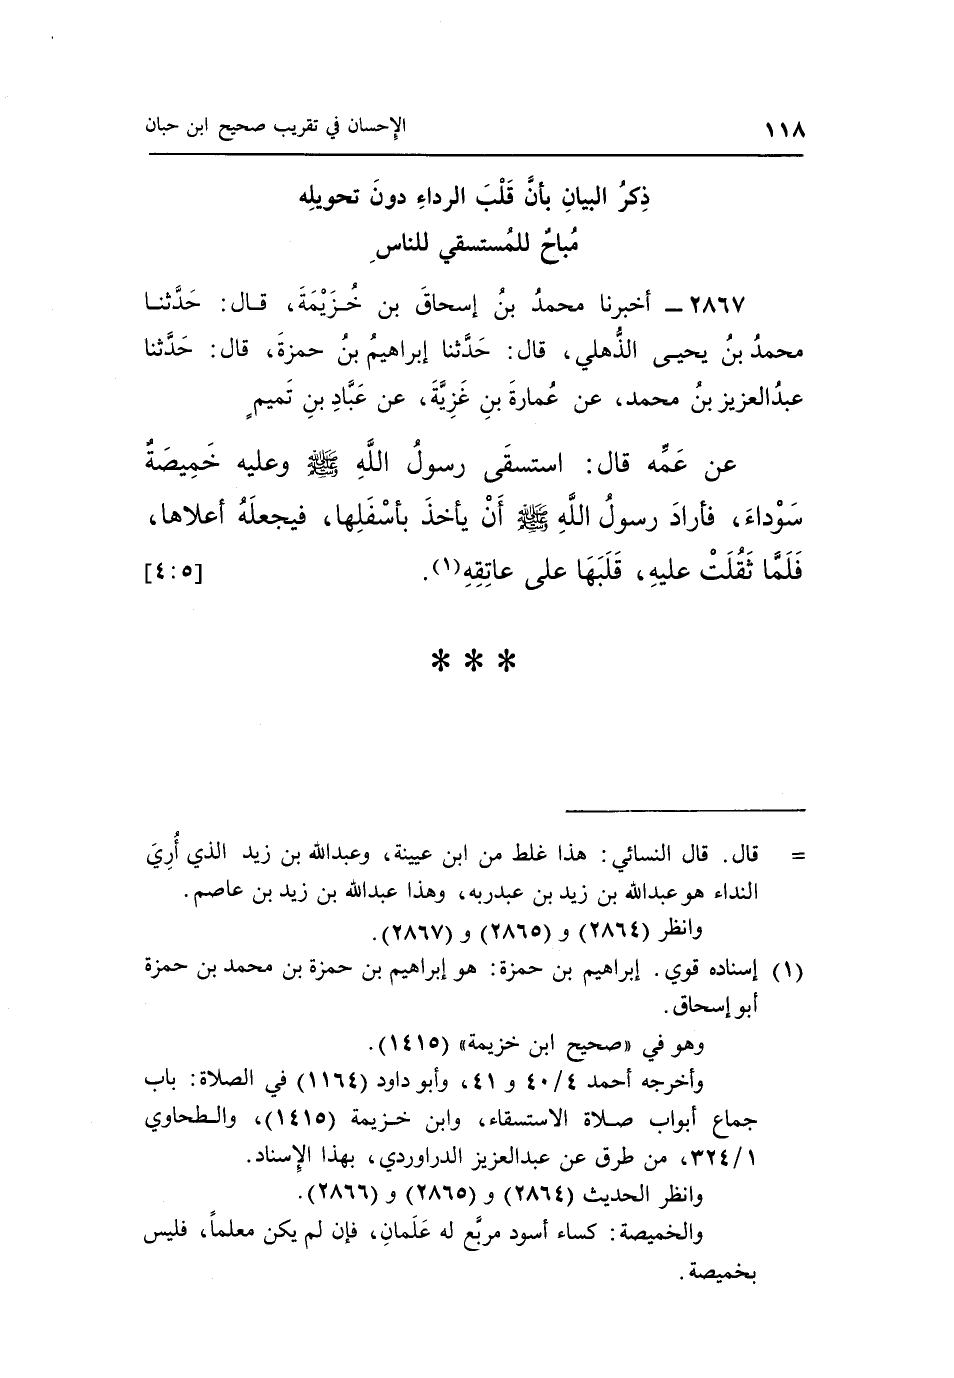 ١١٨ الإحسان في تقريب صحيح ابن حبان
ذِكرُ البيانِ بأنَّ قَلْبَ الرداءِ دونَ تحويلِه
مُباحٌ للمُستسقي للناسِ
٢٨٦٧ ــ أخبرنا محمدُ بنُ إسحاقَ بن خُـزَيْمَةَ، قـال: حَدَّثنـا
محمدُ بنُ يحيـى الذُّهلي، قال: حَدَّثنا إبراهيمُ بنُ حمزةَ، قال: حَدَّثنا
عبدُالعزيز بنُ محمد، عن عُمارةَ بنِ غَزِيَّةَ، عن عَبَّادِ بنِ تَميمٍ
عن عَمِّه قال: استسقَى رسولُ اللَّهِ ﷺ وعليه خَمِيصَةٌ
سَوْداءَ، فأرادَ رسولُ اللَّهِ ﷺ أَنْ يأخذَ بأسْفَلِها، فيجعلَهُ أعلاها،
فَلَمَّا ثَقُلَتْ عليهِ، قَلَبَهَا على عاتِقِهِ(١). [٤:٥]
* * *
= قال. قال النسائي: هذا غلط من ابن عيينة، وعبدالله بن زيد الذي أُرِيَ
النداء هو عبدالله بن زيد بن عبدربه، وهذا عبدالله بن زيد بن عاصم.
وانظر (٢٨٦٤) و (٢٨٦٥) و (٢٨٦٧).
(١) إسناده قوي. إبراهيم بن حمزة: هو إبراهيم بن حمزة بن محمد بن حمزة
أبو إسحاق.
وهو في «صحيح ابن خزيمة» (١٤١٥).
وأخرجه أحمد ٤٠/٤ و ٤١، وأبو داود (١١٦٤) في الصلاة: باب
جماع أبواب صـلاة الاستسقاء، وابن خـزيمة (١٤١٥)، والـطحاوي
٣٢٤/١، من طرق عن عبدالعزيز الدراوردي، بهذا الإسناد.
وانظر الحديث (٢٨٦٤) و (٢٨٦٥) و (٢٨٦٦).
والخميصة: كساء أسود مربَّع له عَلَمانِ، فإن لم يكن معلماً، فليس
بخميصة.